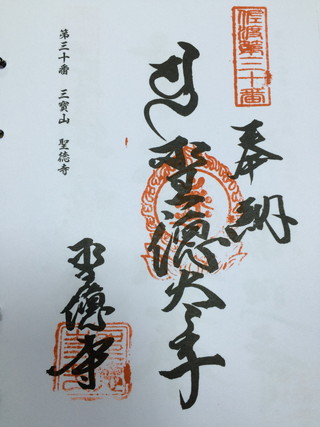 佐渡第三十番
奉納
聖徳太子
聖徳寺
第三十番　三寶山　聖徳寺